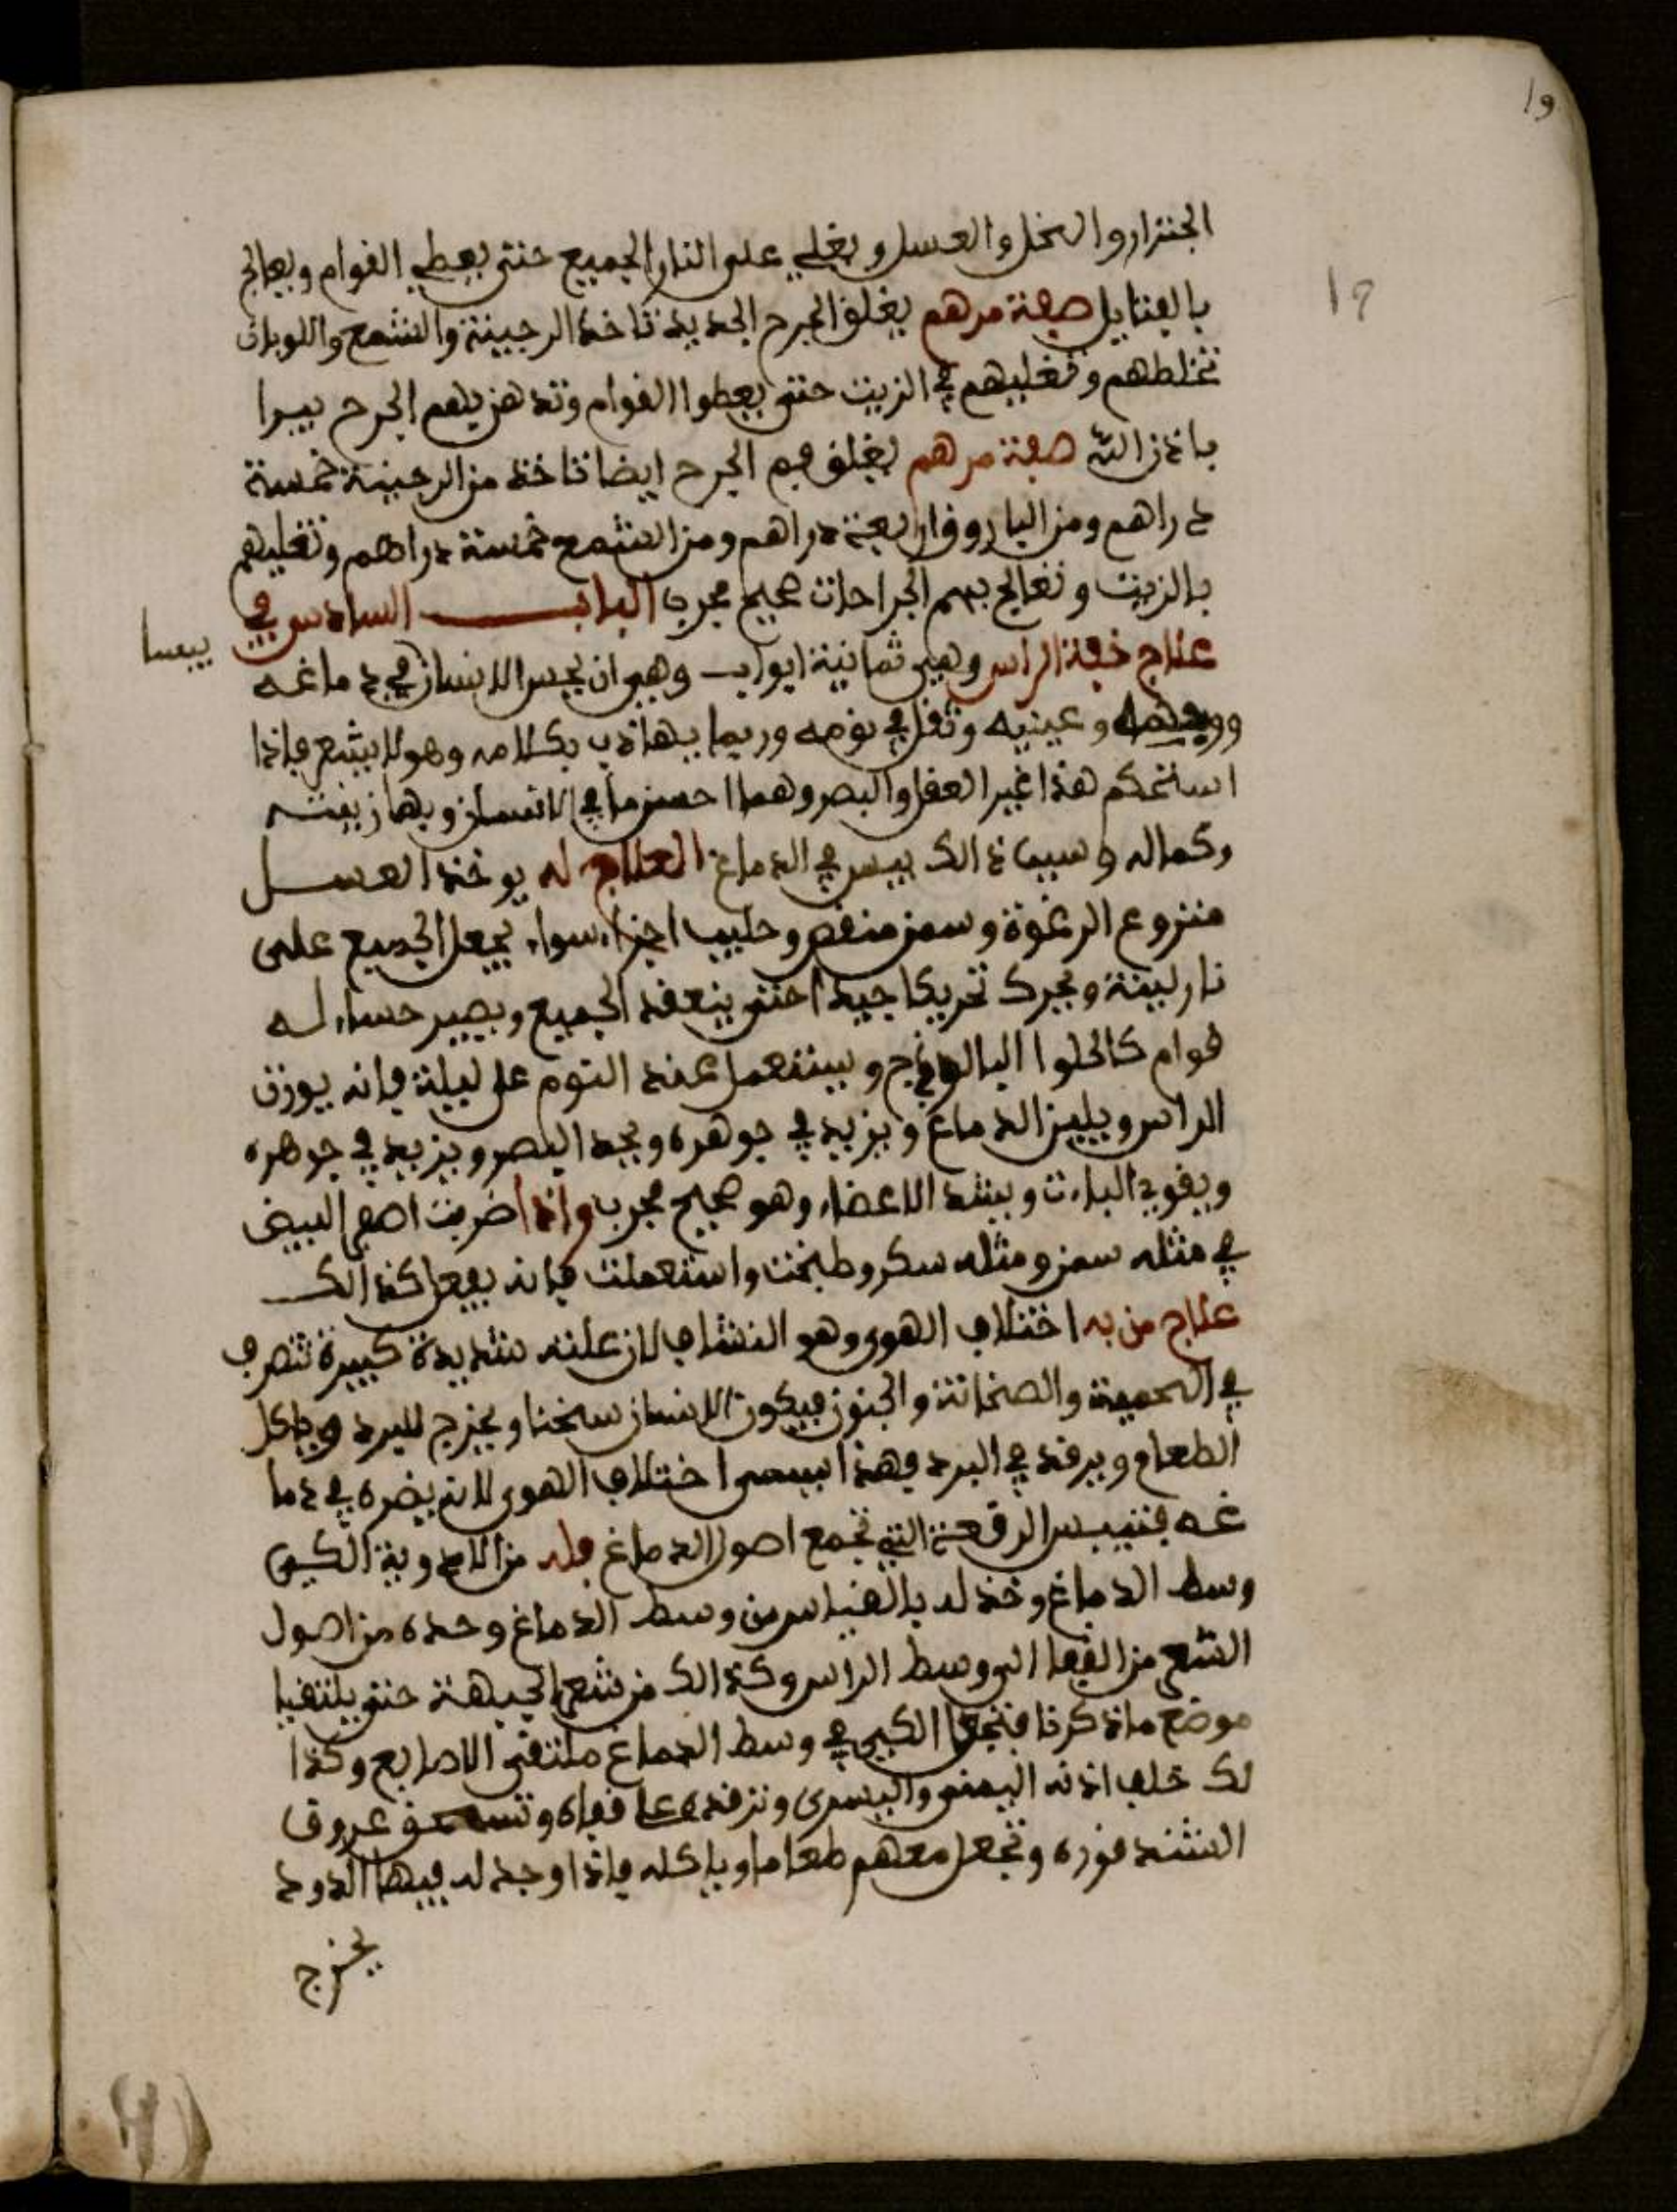 19
19
الجنزار والخل والعسل ويغلى على النار الجميع حتى يعطي القوام ويعالج
بالفتايل صفة مرهم يغلق الجرح الجديد تاخذ الرجينة والشمع واللوبان
تخلطهم وتغليهم في الزيت حتى يعطوا القوام وتدهن بهم الجرح يبرا
باذن الله صفة مرهم يغلق فم الجرح ايضا تاخذ من الرجينة خمسة
دراهم ومن الباروق اربعة دراهم ومن الشمع خمسة دراهم وتغليهم
بالزيت وتعالج بهم الجراحات صحيح مجرب الباب السادس في
علاج خفة الراس وهي ثمانية ابواب وهي ان يحس الانسان في دماغه
يبسا
ووجهه وعينيه وثقل في نومه وربما يهاذي بكلامه وهو لا يشعر فاذا
استحكم هذا غير العقل والبصر وهما احسن ما في الانسان وبها زينته
وكماله وسبب ذالك يبس في الدماغ العلاج له يوخذ العسل
منزوع الرغوة وسمن منقص وحليب اجزاء سواء يجعل الجميع على
نار لينة ويحرك تحريكا جيدا حتى ينعقد الجميع ويصير حساء له
قوام كالحلوا البالوذج ويستعمل عند النوم كل ليلة فانه يوزن
الراس ويلين الدماغ ويزيد في جوهره ويحد البصر ويزيد في جوهره
ويقوي الباءت ويشد الاعضاء وهو صحيح مجرب واذا ضربت اصفر البيض
في مثله سمن ومثله سكر وطبخت واستعملت فانه يفعل كذالك
علاج من به اختلاف الهوى وهو النشاف لان علته شديدة كبيرة تتصرف
في الحمية والصخانة والجنون فيكون الانسان سخنا ويخرج للبرد وياكل
الطعام ويرقد في البرد فهذا يسمى اختلاف الهوى لانه يضره في دما
غه فتيبس الرقعة التي تجمع اصول الدماغ فله من الادوية الكي
وسط الدماغ وخذ له بالقياس من وسط الدماغ وحده من اصول
الشعر من القفا الى وسط الراس وكذالك من شعر الجبهة حتى يلتقيا
موضع ما ذكرنا فتجعل الكي في وسط الدماغ ملتقى الاصابع وكذا
لك خلف اذنه اليمنى واليسرى وترقده على قفاه وتسحق عروق
الشندقوره وتجعل معهم طعاما وياكله فاذا وجد له فيها الدود
يخرج